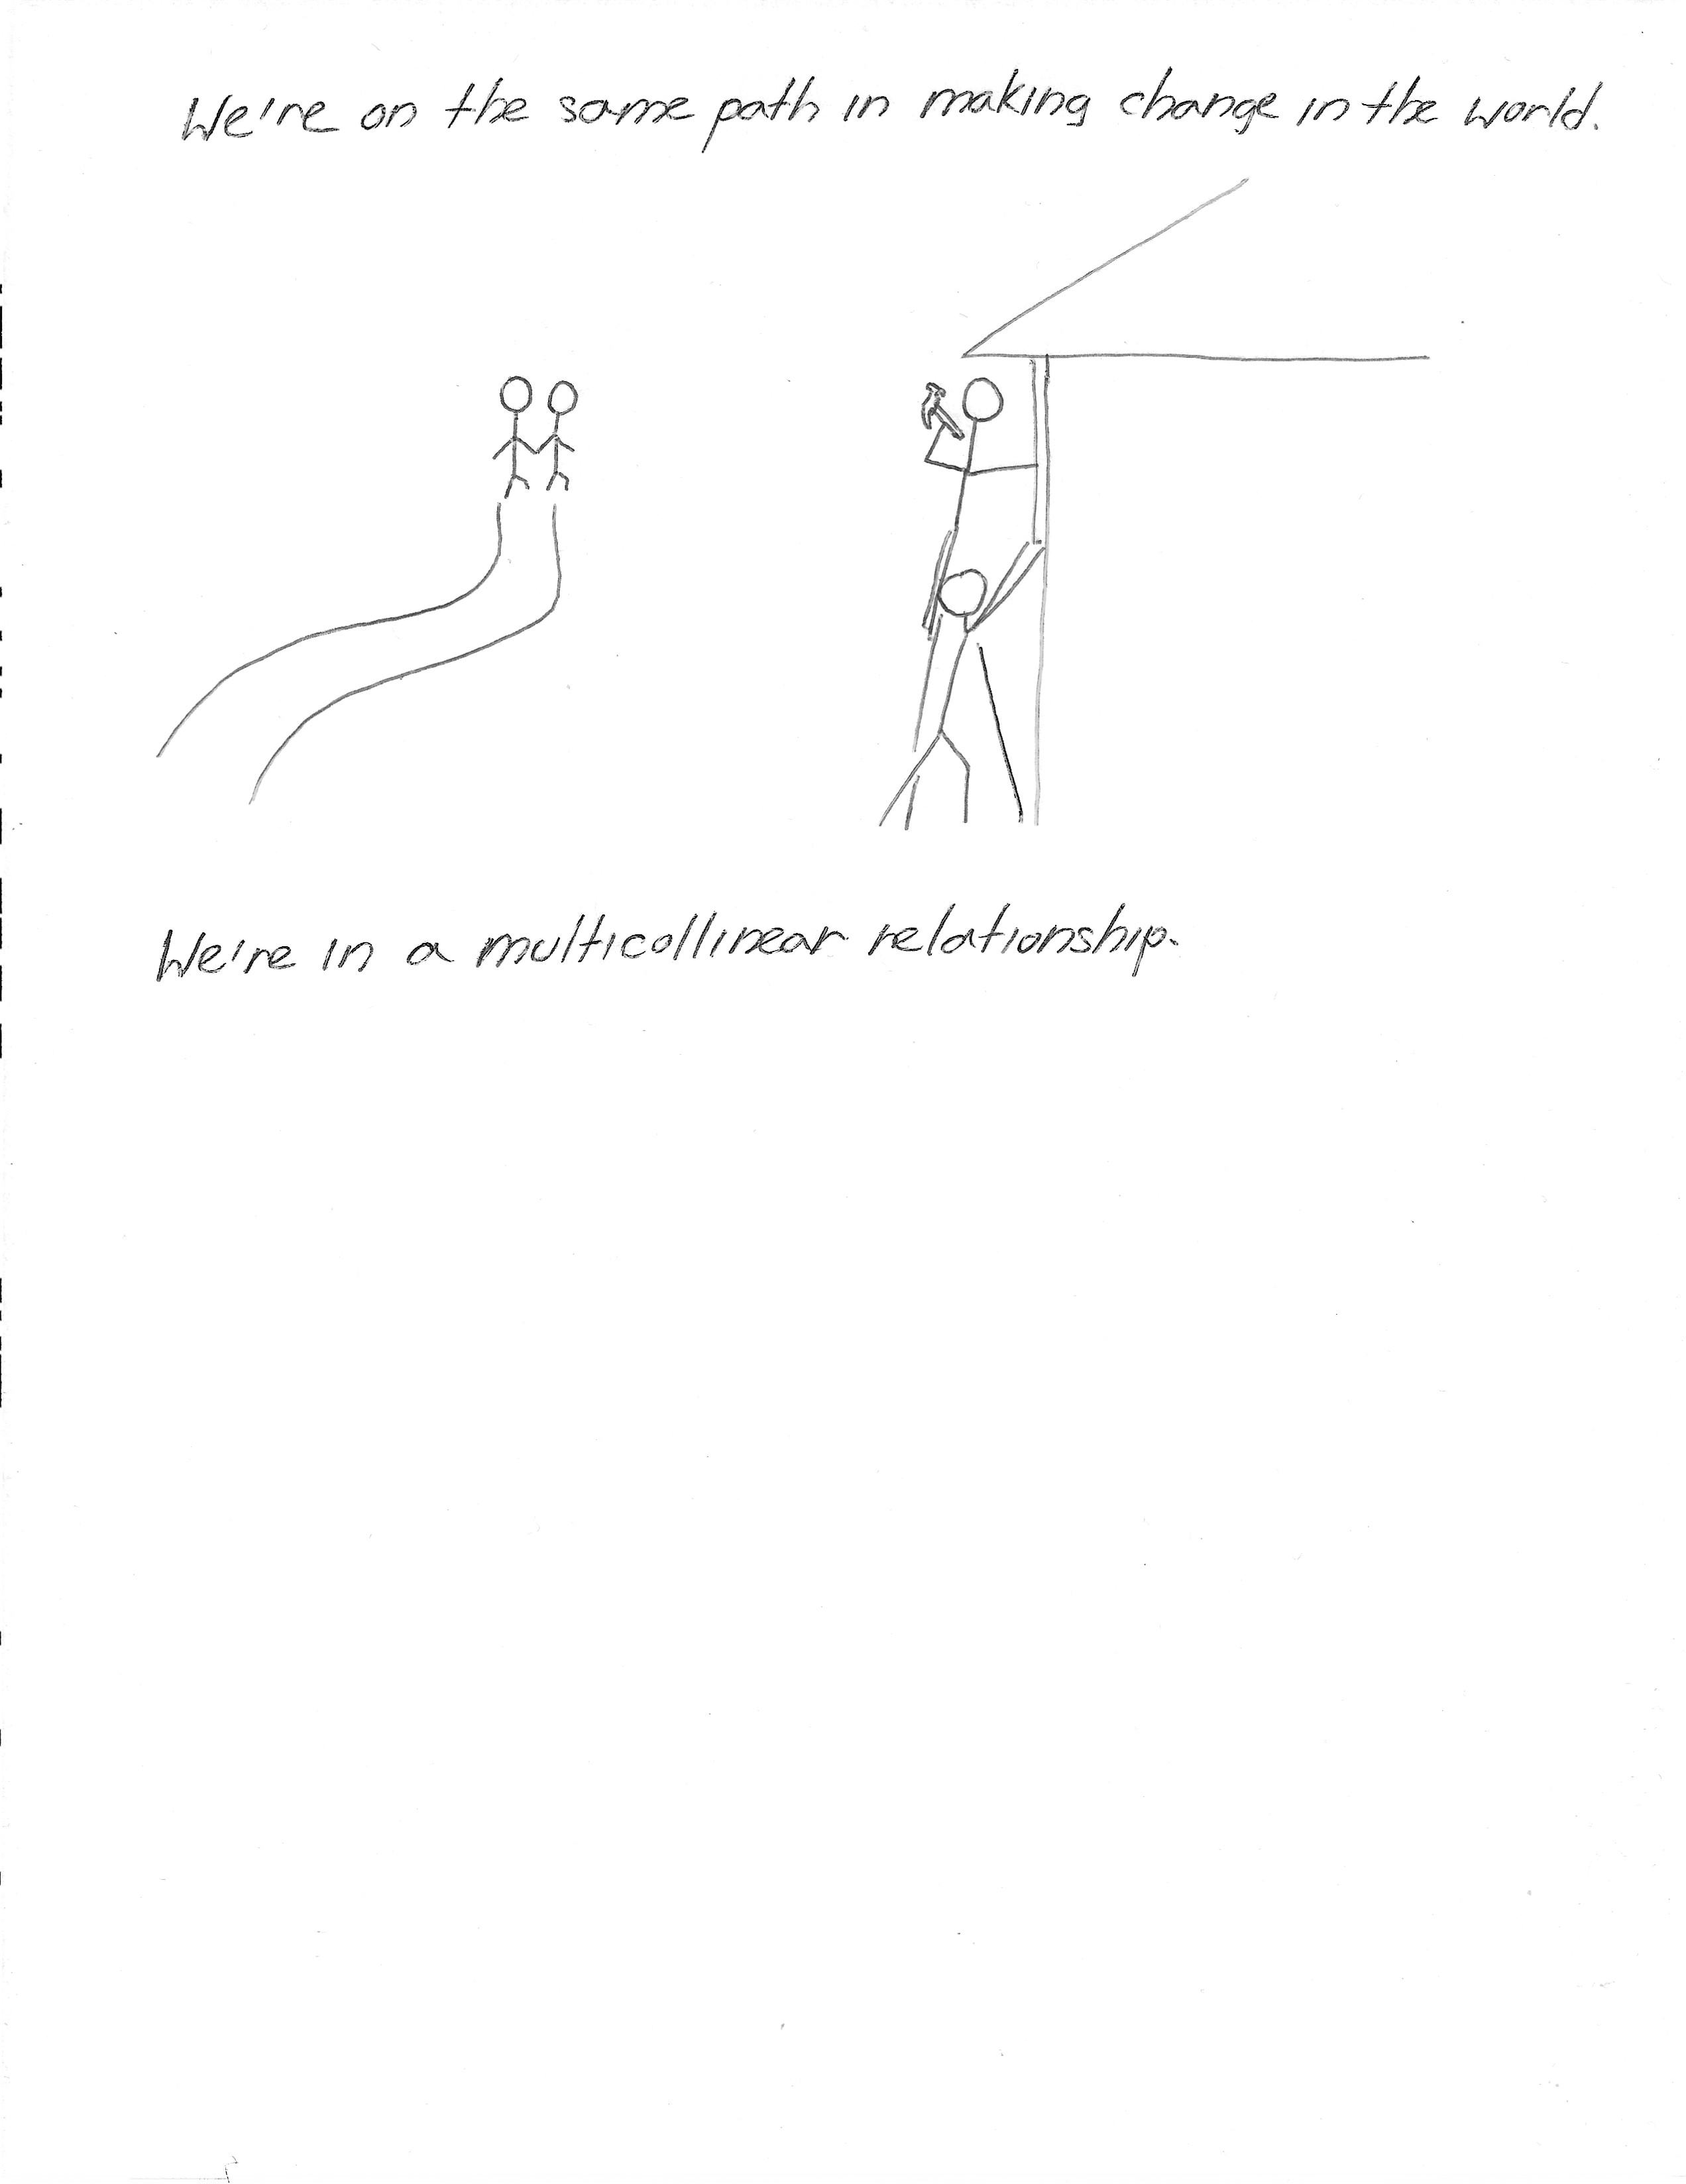 We're on the same path in making change in the world.
We're in a multicollinear relationship.